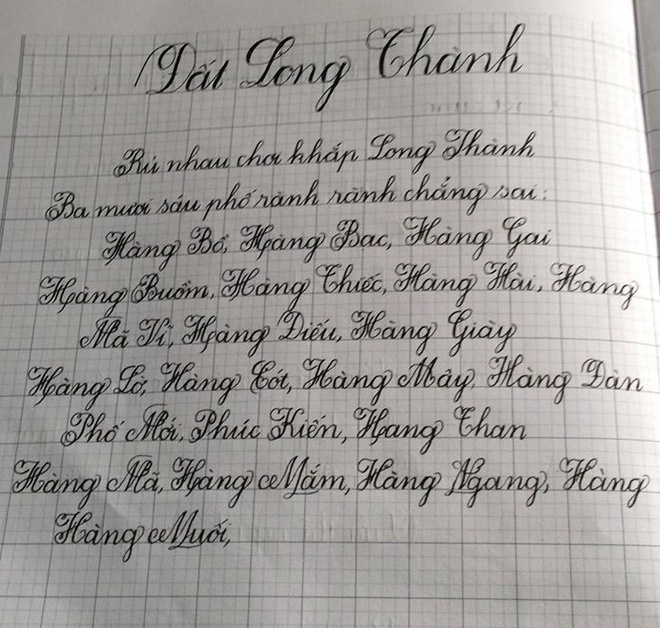 Đất Long Thành
Rủ nhau chơi khắp Long Thành
Ba mươi sáu phố rành rành chẳng sai:
Hàng Bồ, Hàng Bạc, Hàng Gai
Hàng Buồm, Hàng Thiếc, Hàng Hài, Hàng
Mã Vĩ, Hàng Điếu, Hàng Giày
Hàng Lờ, Hàng Cót, Hàng Mây, Hàng Đàn
Phố Mới, Phúc Kiến, Hang Than
Hàng Mã, Hàng Mắm, Hàng Ngang, Hàng
Hàng Muối,